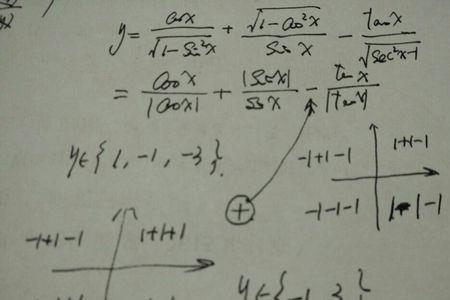 y = cosx/√(1-Sin²x) + √(1-Cos²x)/Sin x - tanx/√(Sec²x-1)
= Cosx/|Cosx| + |Sinx|/Sinx - tanx/|tanx|
y∈{1, -1, -3}.
-1+1-1 1+1-1
⊕ -1-1-1
-1+1-1 1+1+1
y∈{-1, 3}